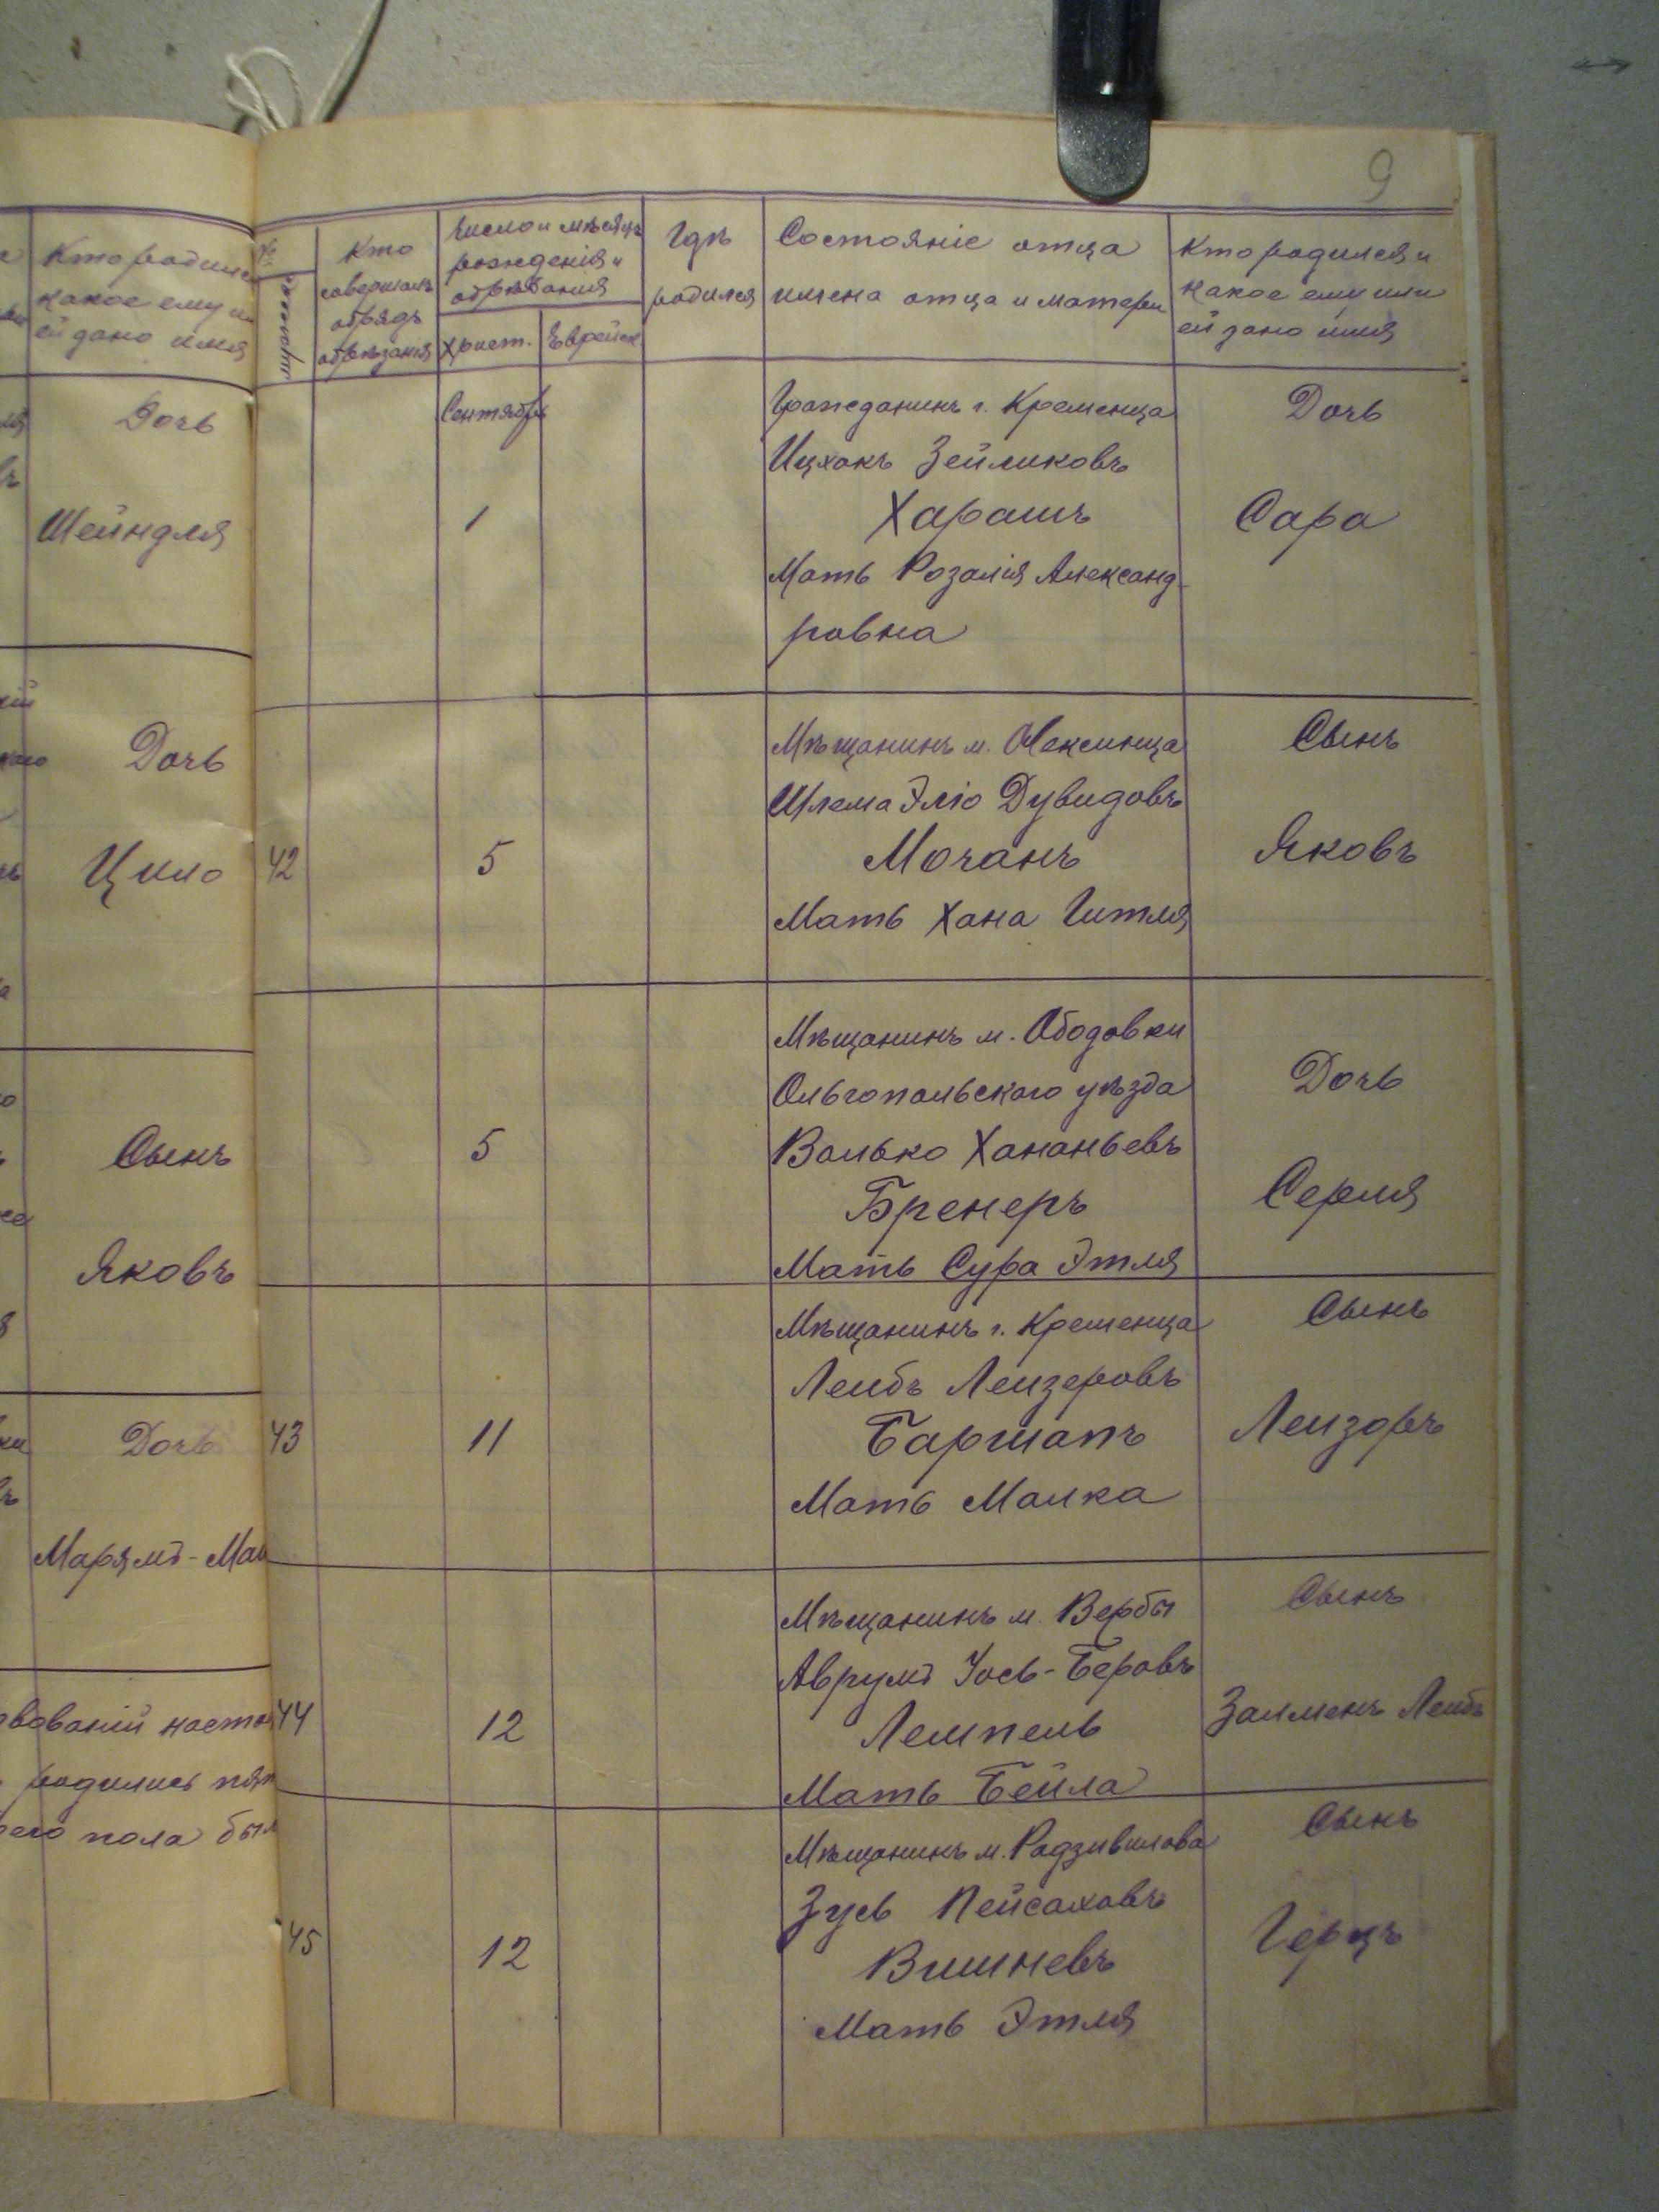 9
Кто родился
какое ему и
ей дано имя
Дочь
Шейндля
Дочь
Цило
Сынъ
Яковъ
Дочь
Марямъ-Ма
вованій насто
родились
его пола был
Кто
совершалъ
обрядъ
обрѣзанія
Число и мѣсяцъ
рожденія и
обрѣзанія
Христ.
Еврейск
Гдѣ
родился
Состояніе отца
имена отца и матери
Кто родился и
какое ему или
ей дано имя
Сентября
1
Гражданинъ г. Кременца
Ицхокъ Зейликовъ
Харашъ
Мать Розалія Александ-
ровна
Дочь
Сара
42
5
Мѣщанинъ м. Олексинца
Шлема Эліо Дувидовъ
Мочанъ
Мать Хана Гитля
Сынъ
Яковъ
5
Мѣщанинъ м. Ободовки
Ольгопольского уѣзда
Волько Хананьевъ
Бренеръ
Мать Сура Этля
Дочь
Серля
43
11
Мѣщанинъ г. Кременца
Лейбъ Лейзеровъ
Баршапъ
Мать Малка
Сынъ
Лейзоръ
44
12
Мѣщанинъ м. Вербы
Аврумъ Іось-Беровъ
Лемпель
Мать Бейла
Сынъ
Залменъ Лейбъ
45
12
Мѣщанинъ м. Радзивилова
Зусь Пейсаховъ
Вишневъ
Мать Этля
Сынъ
Герцъ